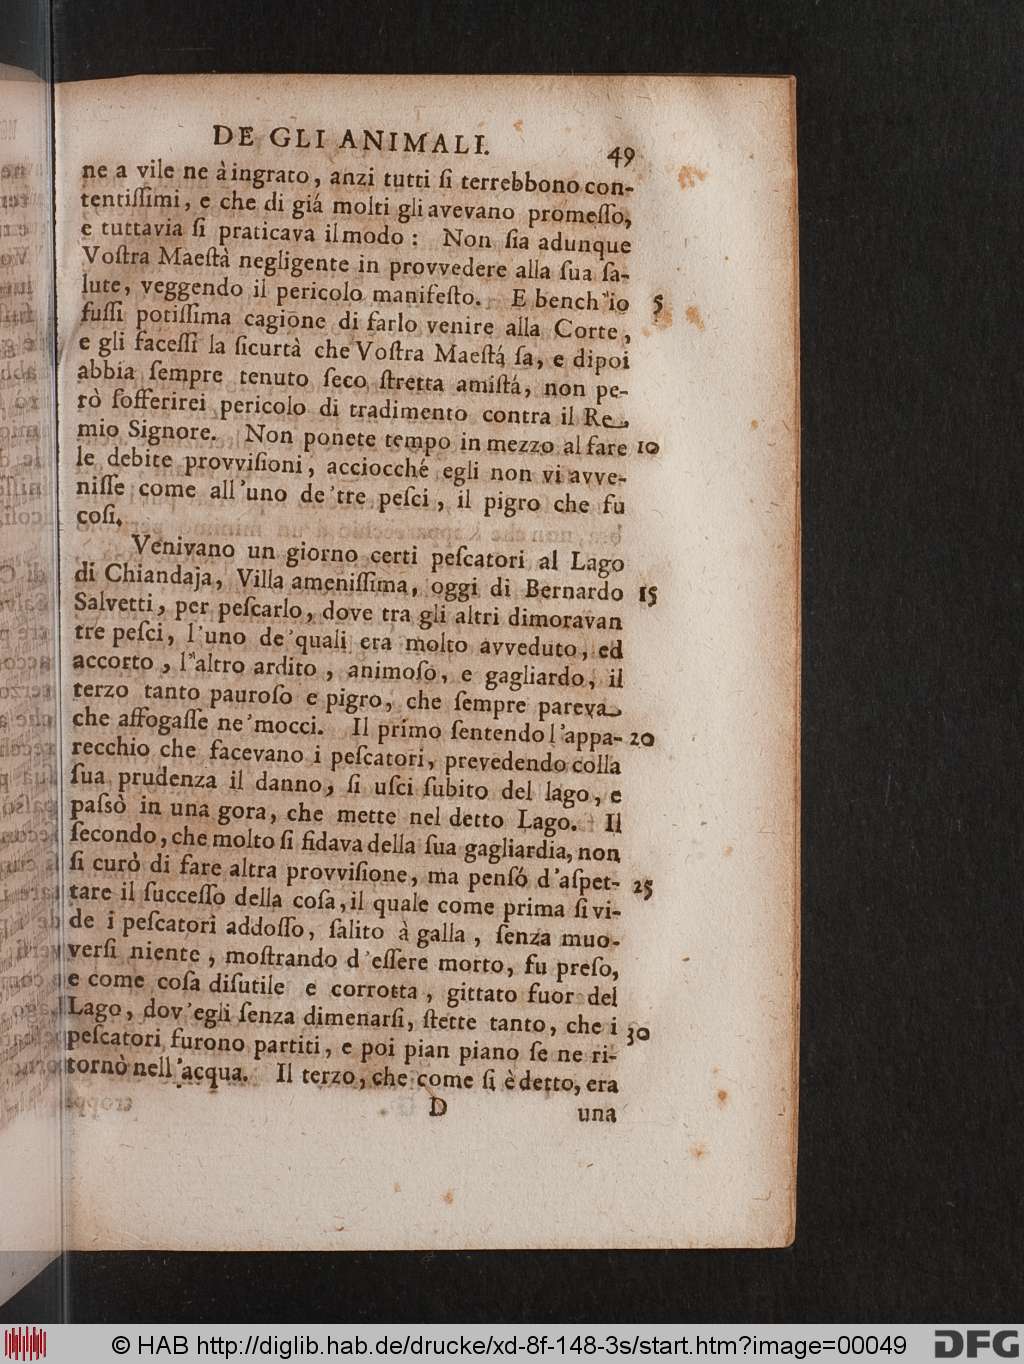 DE GLI ANIMALI. 49
ne a vile ne à ingrato, anzi tutti ſi terrebbono con-
tentiſſimi, e che di giá molti gli avevano promeſſo,
e tuttavia ſi praticava il modo : Non ſia adunque
Voſtra Maeſtà negligente in provvedere alla ſua ſa-
lute, veggendo il pericolo manifeſto. E bench'io 5
fuſſi potiſſima cagione di farlo venire alla Corte,
e gli faceſſi la ſicurtà che Voſtra Maeſtá ſa, e dipoi
abbia ſempre tenuto ſeco ſtretta amiſtá, non pe-
rò ſofferirei pericolo di tradimento contra il Re
mio Signore. Non ponete tempo in mezzo al fare 10
le debite provviſioni, acciocché egli non vi avve-
niſſe come all'uno de'tre peſci, il pigro che fu
coſi.
Venivano un giorno certi peſcatori al Lago
di Chiandaja, Villa ameniſſima, oggi di Bernardo 15
Salvetti, per peſcarlo, dove tra gli altri dimoravan
tre peſci, l'uno de'quali era molto avveduto, ed
accorto, l'altro ardito, animoſo, e gagliardo, il
terzo tanto pauroſo e pigro, che ſempre pareva
che affogaſſe ne'mocci. Il primo ſentendo l'appa- 20
recchio che facevano i peſcatori, prevedendo colla
ſua prudenza il danno, ſi uſci ſubito del lago, e
paſsò in una gora, che mette nel detto Lago. Il
ſecondo, che molto ſi fidava della ſua gagliardia, non
ſi curò di fare altra provviſione, ma penſó d'aſpet- 25
tare il ſucceſſo della coſa, il quale come prima ſi vi-
de i peſcatori addoſſo, ſalito à galla, ſenza muo-
verſi niente, moſtrando d'eſſere morto, fu preſo,
e come coſa diſutile e corrotta, gittato fuor del
Lago, dov'egli ſenza dimenarſi, ſtette tanto, che i 30
peſcatori furono partiti, e poi pian piano ſe ne ri-
tornò nell'acqua. Il terzo, che come ſi è detto, era
D una
© HAB http://diglib.hab.de/drucke/xd-8f-148-3s/start.htm?image=00049 DFG